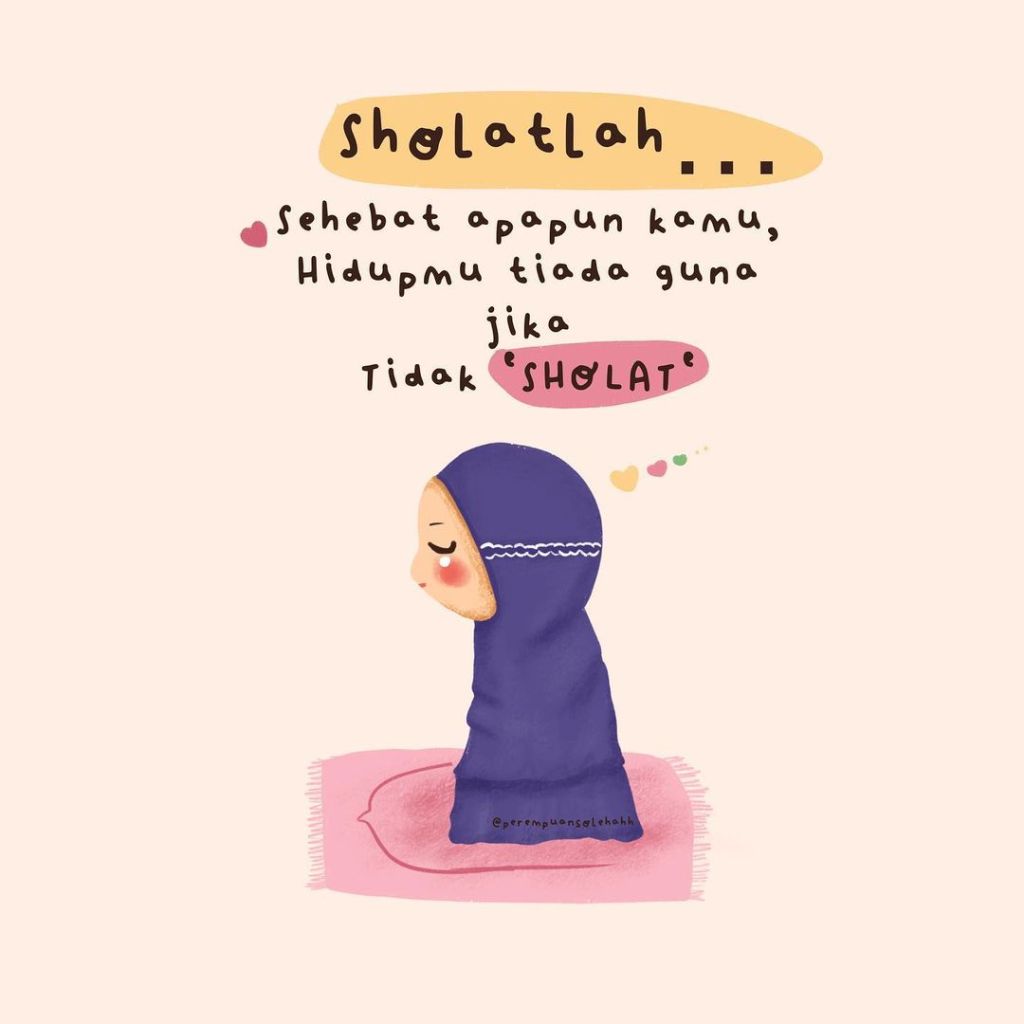 Sholatlah...
Sehebat apapun kamu,
Hidupmu tiada guna
jika
Tidak "SHOLAT"
@perempuansolehahh